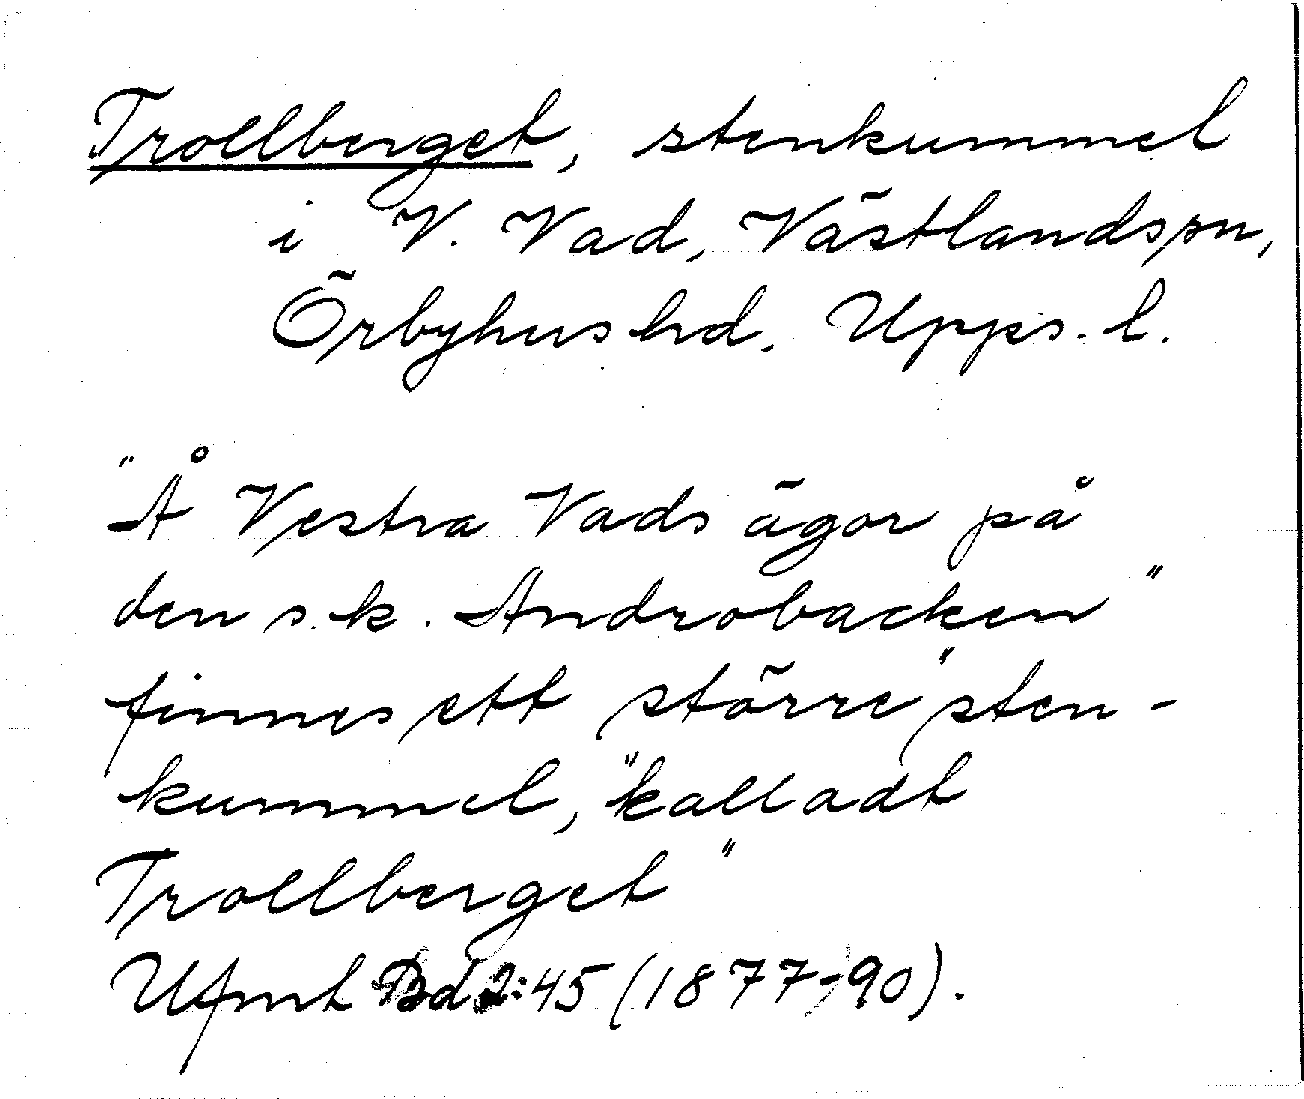 Trollberget, stenkummel
i V. Vad, Västlandssn,
Örbyhus hd. Upps. l.
"Å Vestra Vads ägor på
den s.k. Androbacken"
finnes ett större "sten-
kummel," "kalladt
Trollberget"
Ufmt Bd 2:45 (1877-90).